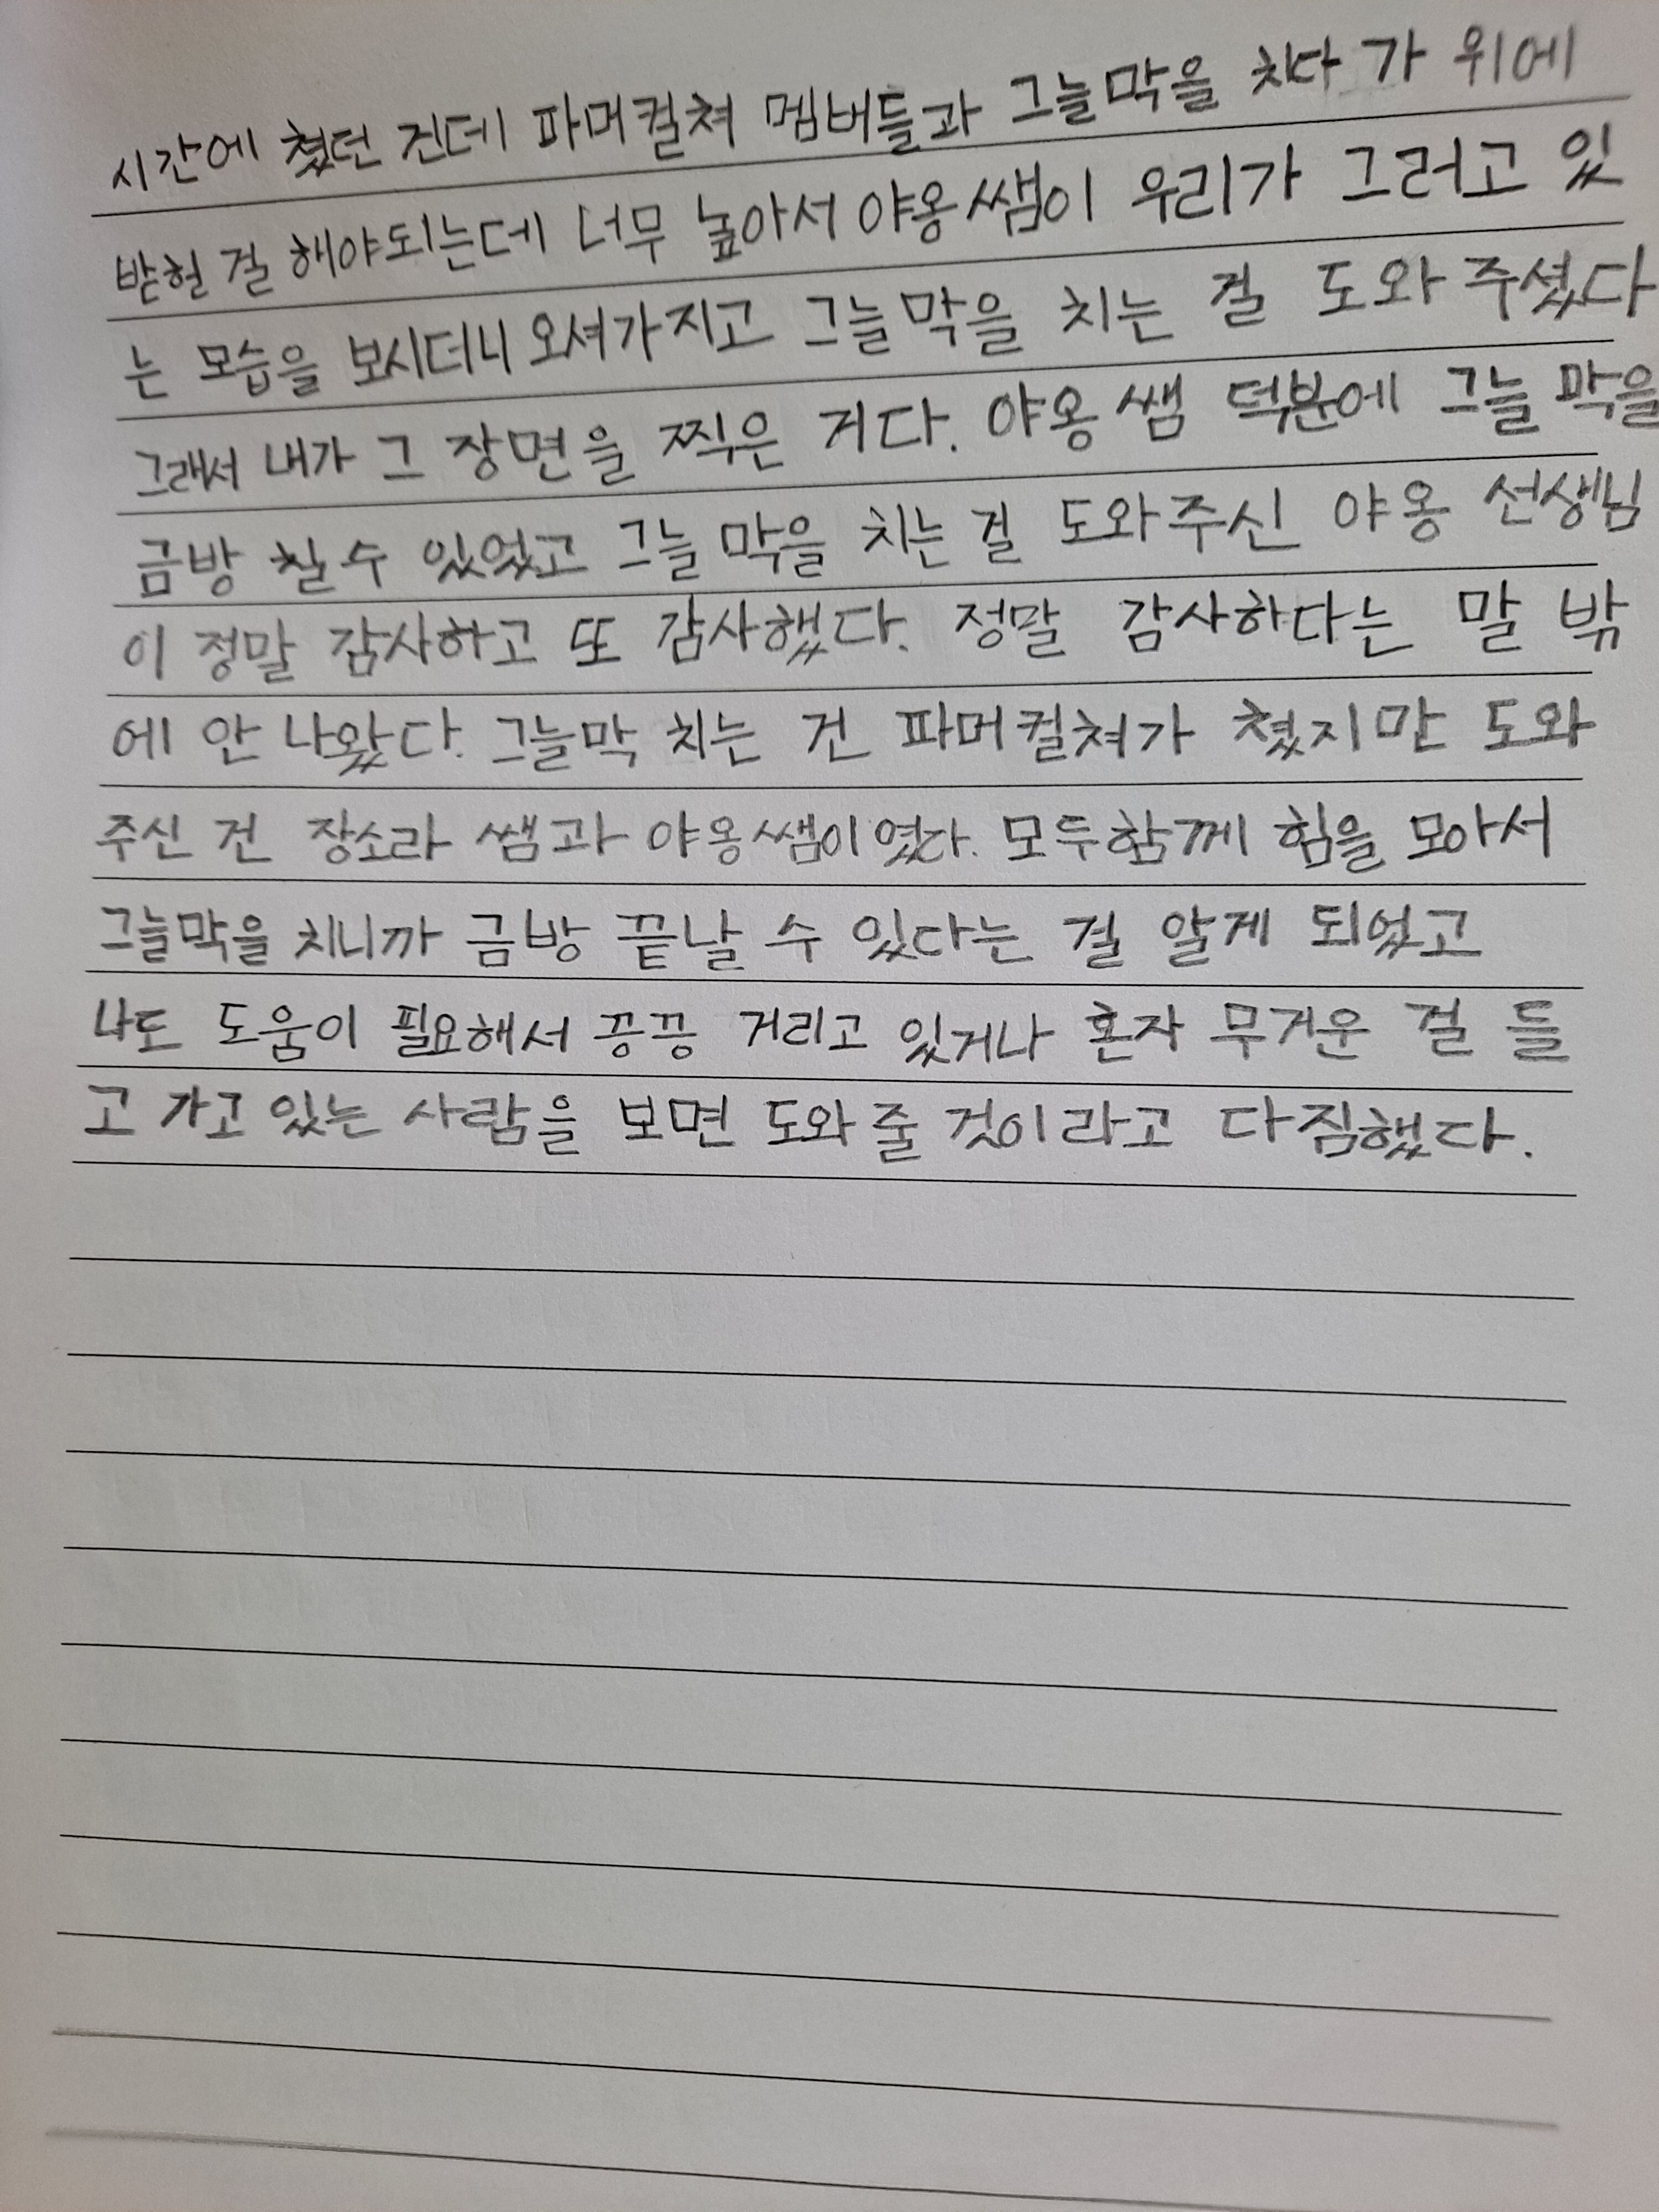 시간에 쳤던 건데 파머컬쳐 멤버들과 그늘막을 치다가 위에
받헐 걸 해야되는데 너무 높아서 야옹쌤이 우리가 그러고 있
는 모습을 보시더니 오셔가지고 그늘막을 치는 걸 도와주셨다
그래서 내가 그 장면을 찍은 거다. 야옹쌤 덕분에 그늘막을
금방 칠 수 있었고 그늘막을 치는 걸 도와주신 야옹 선생님
이 정말 감사하고 또 감사했다. 정말 감사하다는 말 밖
에 안 나왔다. 그늘막 치는 건 파머컬쳐가 쳤지만 도와
주신 건 장소라 쌤과 야옹쌤이였다. 모두함께 힘을 모아서
그늘막을 치니까 금방 끝날 수 있다는 걸 알게 되었고
나도 도움이 필요해서 끙끙 거리고 있거나 혼자 무거운 걸 들
고 가고 있는 사람을 보면 도와 줄 것이라고 다짐했다.